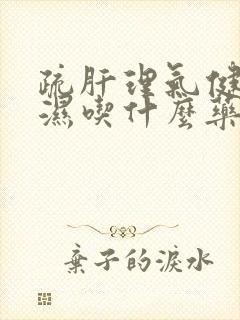 疏肝理氣健
濕喫什麼藥
棄子的淚水